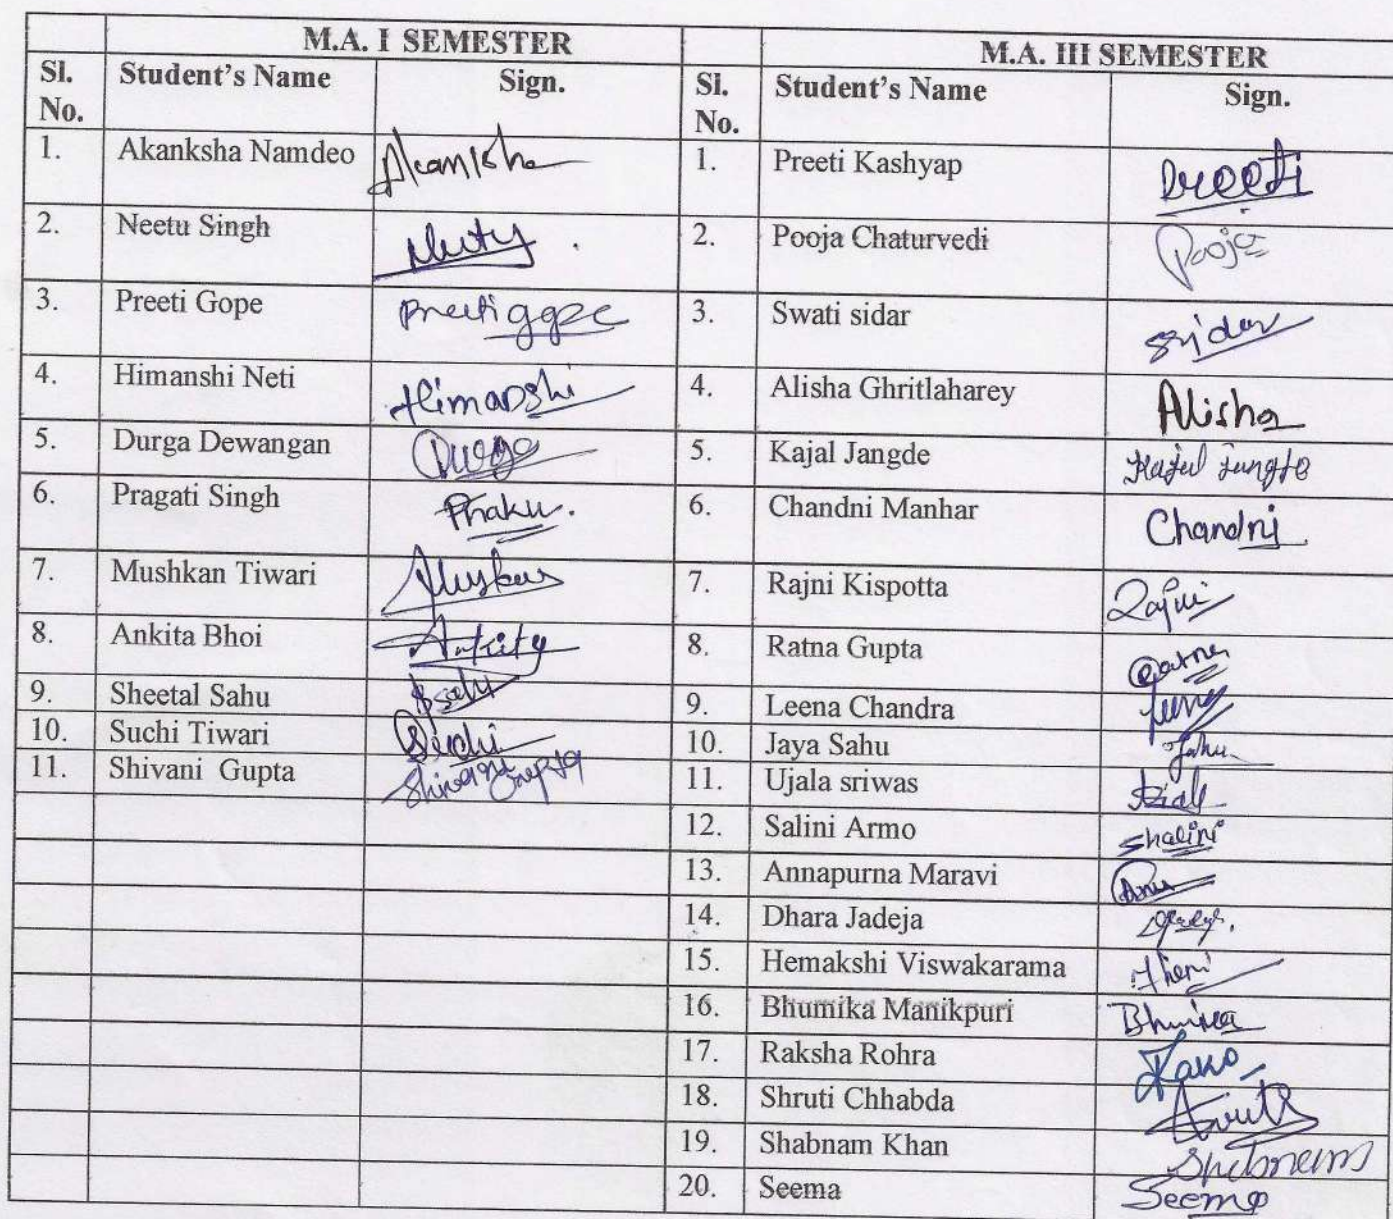 M.A. I SEMESTER M.A. III SEMESTER
Sl. No. Student's Name Sign. Sl. No. Student's Name Sign.
1. Akanksha Namdeo Akanksha 1. Preeti Kashyap Preeti
2. Neetu Singh 2. Pooja Chaturvedi Pooja
3. Preeti Gope Preeti gope 3. Swati sidar Sidar
4. Himanshi Neti Himanshi 4. Alisha Ghritlaharey Alisha
5. Durga Dewangan Durga 5. Kajal Jangde Kajal Jangde
6. Pragati Singh 6. Chandni Manhar Chandni
7. Mushkan Tiwari Muskan 7. Rajni Kispotta Rajni
8. Ankita Bhoi Ankita 8. Ratna Gupta Ratna
9. Sheetal Sahu 9. Leena Chandra
10. Suchi Tiwari Suchi 10. Jaya Sahu
11. Shivani Gupta Shivani Gupta 11. Ujala sriwas
12. Salini Armo Shalini
13. Annapurna Maravi Anu
14. Dhara Jadeja
15. Hemakshi Viswakarama Hemi
16. Bhumika Manikpuri
17. Raksha Rohra
18. Shruti Chhabda Shruti
19. Shabnam Khan Shabnam
20. Seema Seema